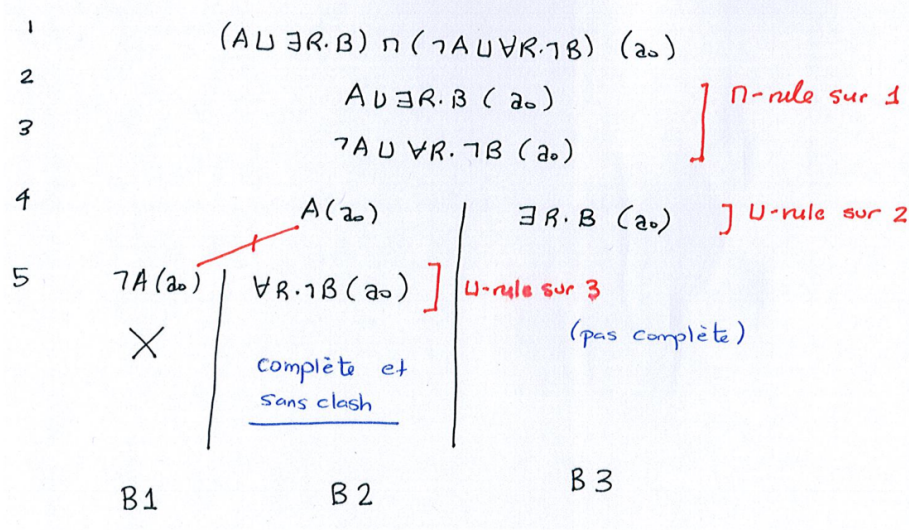 1 (A⊔∃R.B) ⊓ (¬A⊔∀R.¬B) (a₀)
2 A⊔∃R.B (a₀)
⊓-rule sur 1
3 ¬A⊔∀R.¬B (a₀)
4 A(a₀) ∃R.B (a₀) ⊔-rule sur 2
5 ¬A(a₀) ∀R.¬B(a₀) ⊔-rule sur 3
(pas complète)
complète et
sans clash
B1 B2 B3